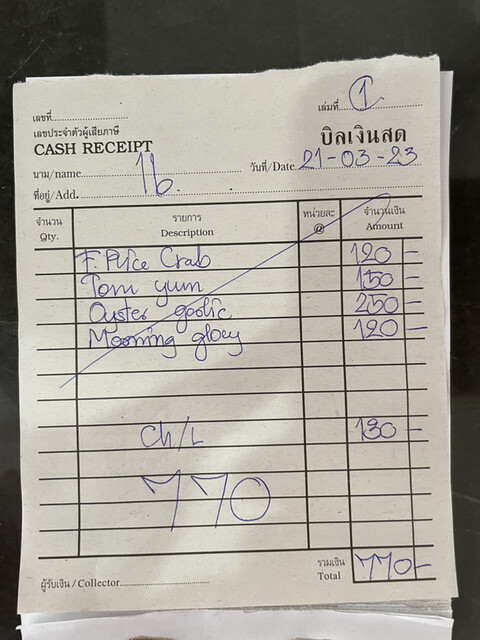 เลขที่ เล่มที่ 1
เลขประจำตัวผู้เสียภาษี
CASH RECEIPT บิลเงินสด
นาม/name 16 วันที่/Date 21-03-23
ที่อยู่/Add.
จำนวน รายการ หน่วยละ จำนวนเงิน
Qty. Description @ Amount
F. Rice Crab 120 -
Tom yum 150 -
Oyster garlic 250 -
Morning glory 120 -
Ch/L 130 -
770
รวมเงิน
Total 770 -
ผู้รับเงิน / Collector